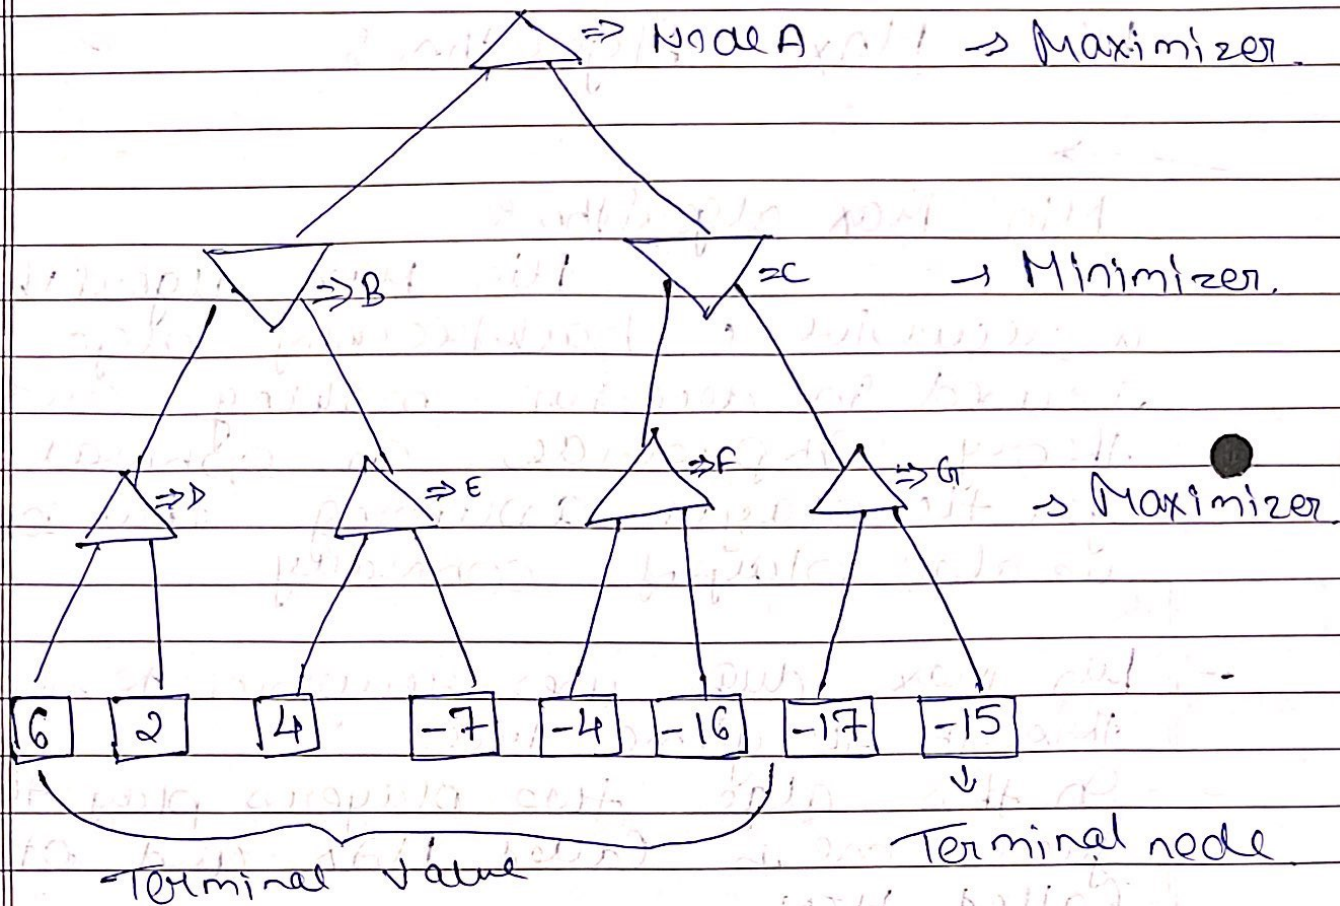 ⇒ Node A → Maximizer.
⇒ B
= C → Minimizer.
⇒ D ⇒ E ⇒ F ⇒ G → Maximizer.
6 2 4 -7 -4 -16 -17 -15
↓
Terminal value
Terminal node